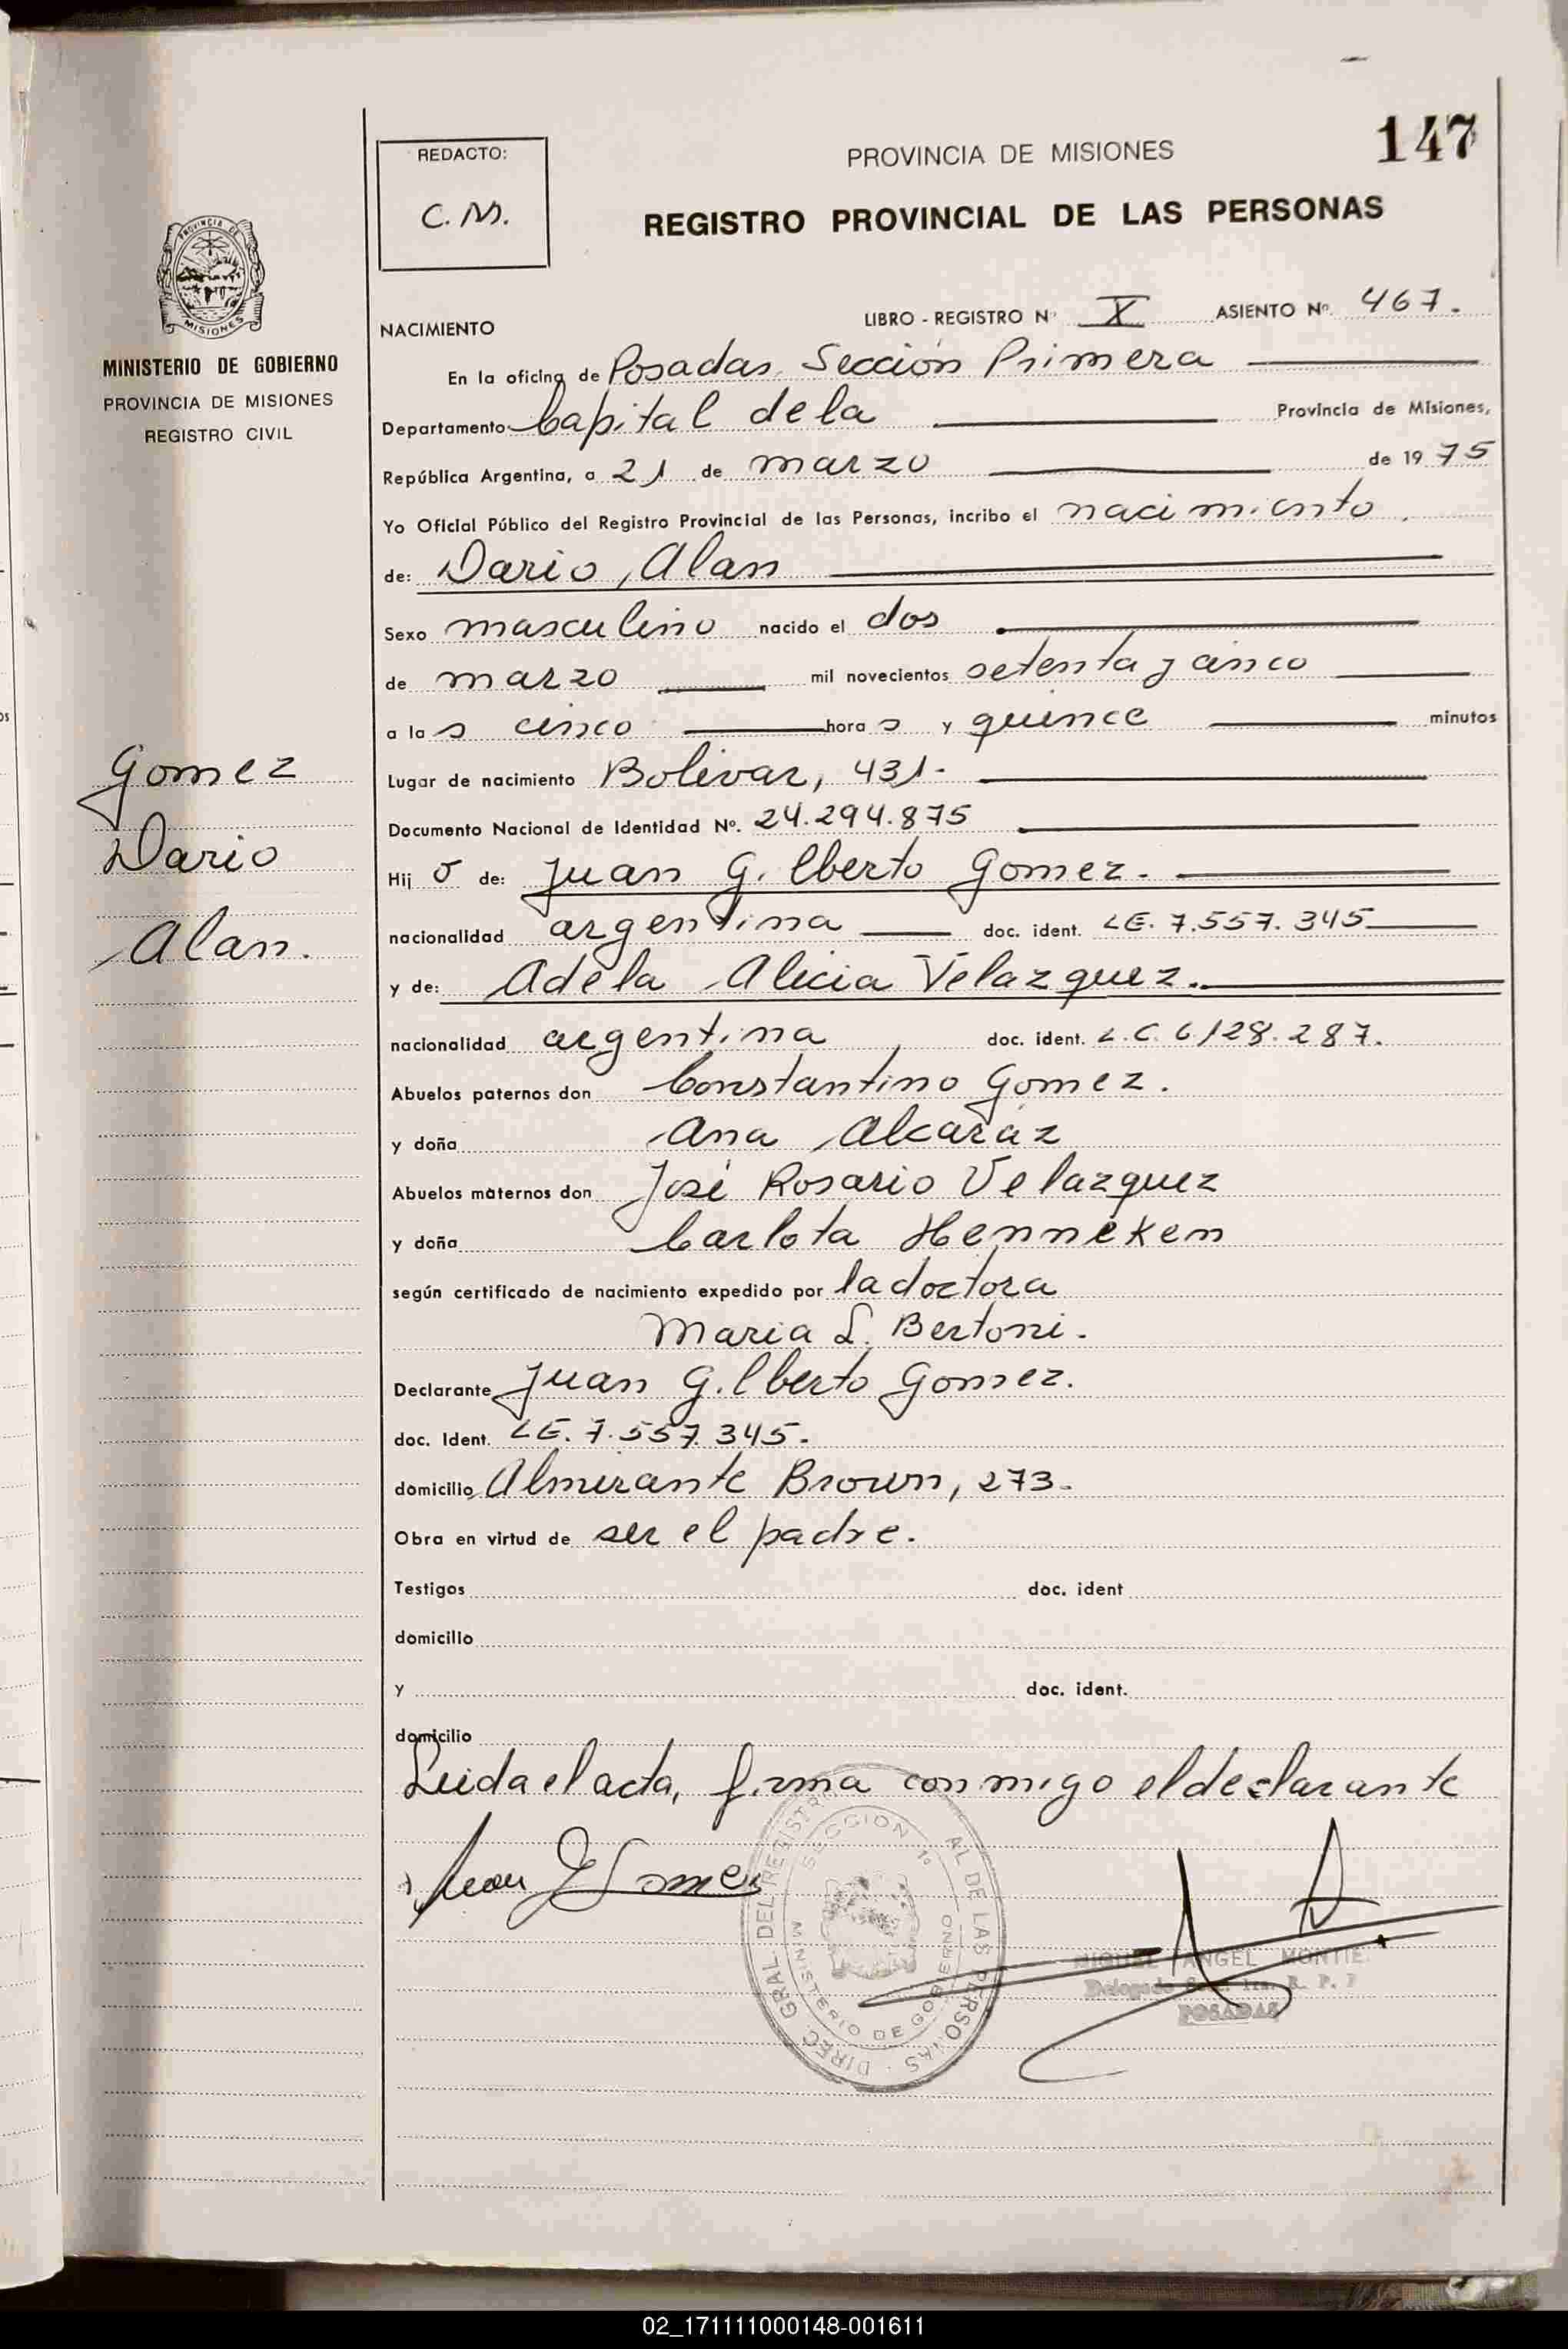 147
REDACTO:
C. M.
PROVINCIA DE MISIONES
REGISTRO PROVINCIAL DE LAS PERSONAS
PROVINCIA DE
MISIONES
MINISTERIO DE GOBIERNO
PROVINCIA DE MISIONES
REGISTRO CIVIL
Gomez
Dario
Alan.
NACIMIENTO
LIBRO - REGISTRO Nº X ASIENTO Nº. 467.
En la oficina de Posadas, Sección Primera
Departamento Capital de la Provincia de Misiones,
República Argentina, a 21 de marzo de 1975
Yo Oficial Público del Registro Provincial de las Personas, incribo el nacimiento
de: Dario, Alan
Sexo masculino nacido el dos
de marzo mil novecientos setenta y cinco
a las cinco horas y quince minutos
Lugar de nacimiento Bolivar, 431.
Documento Nacional de Identidad Nº. 24.294.875
Hijo de: Juan Gilberto Gomez.
nacionalidad argentina doc. ident. LE. 7.557.345
y de: Adela Alicia Velazquez.
nacionalidad argentina doc. ident. L.C. 6.128.287.
Abuelos paternos don Constantino Gomez.
y doña Ana Alcaráz
Abuelos maternos don José Rosario Velazquez
y doña Carlota Henneken
según certificado de nacimiento expedido por la doctora
Maria L. Bertoni.
Declarante Juan Gilberto Gomez.
doc. Ident. LE. 7.557.345.
domicilio Almirante Brown, 273.
Obra en virtud de ser el padre.
Testigos doc. ident
domicilio
y doc. ident.
domicilio
Leida el acta, firma conmigo el declarante
Juan G Gomez
DIREC. GRAL DEL REGISTR AL DE LAS PERSONAS
SECCION 1º
MINISTERIO DE GOBIERNO
MIGUEL ANGEL MONTIE
Delegado R. P. P
POSADAS
02_171111000148-001611